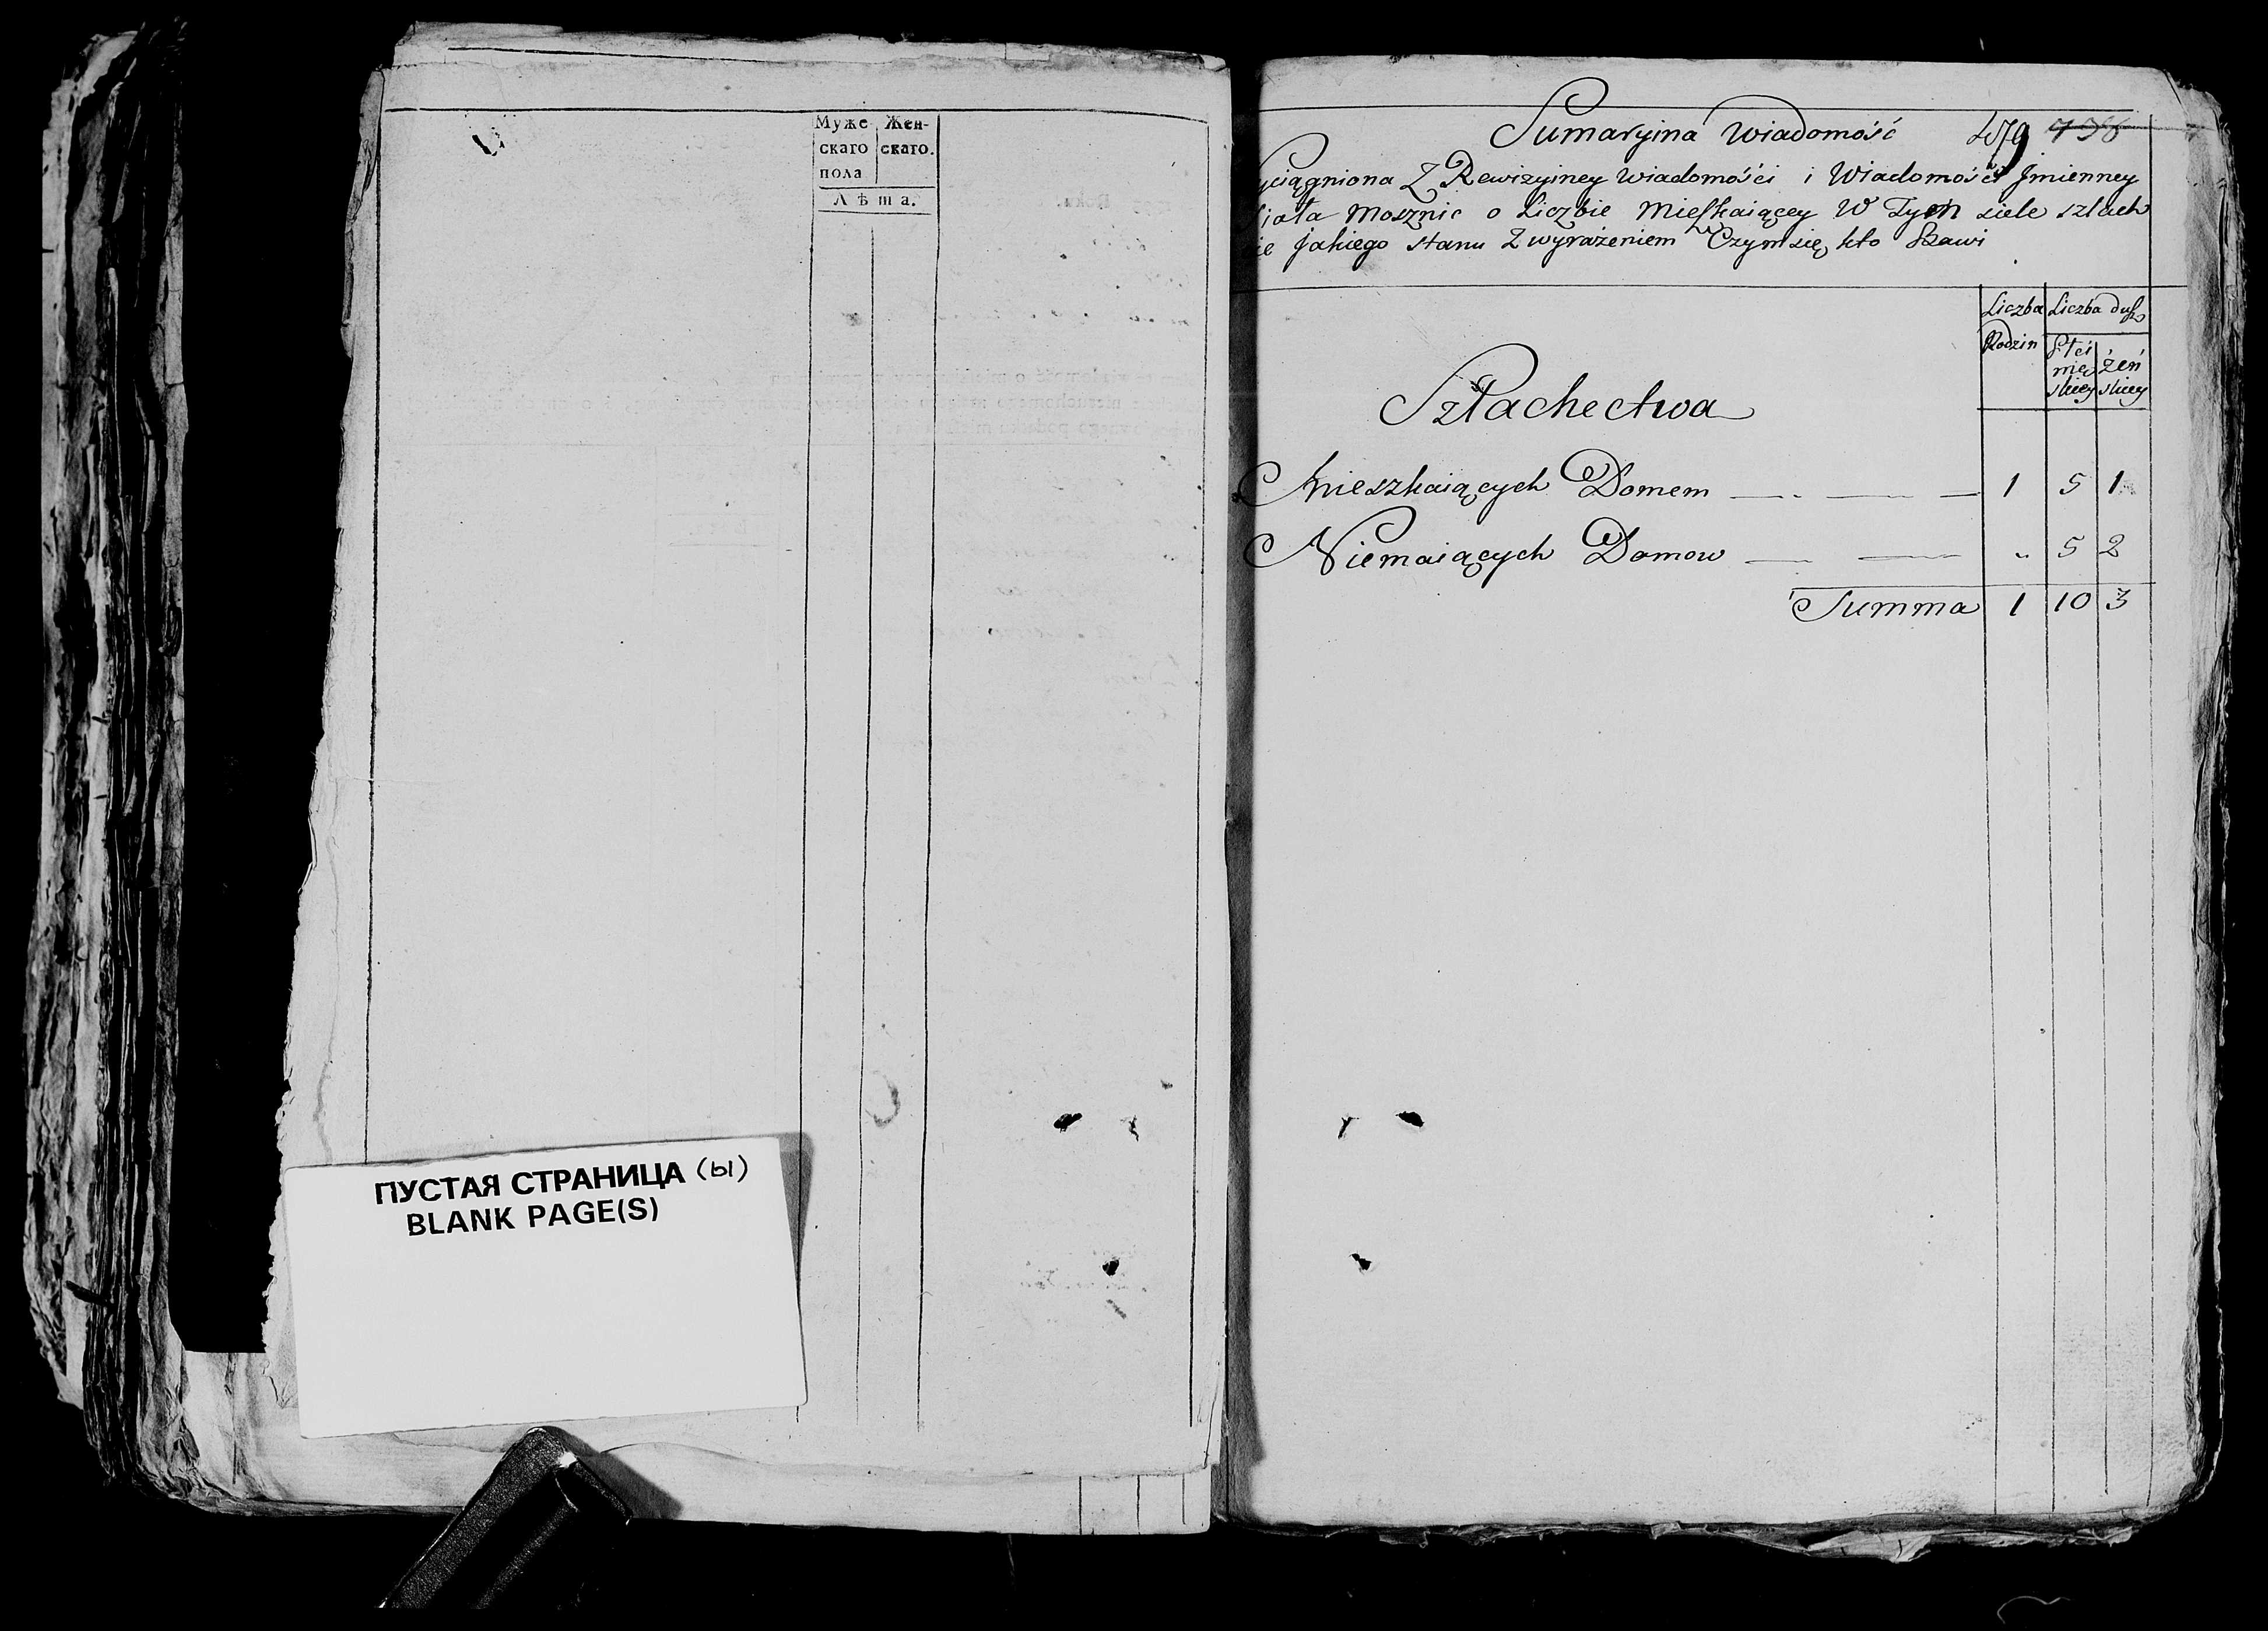 Муже- Жен-
скаго скаго.
пола
Лѣта.
ПУСТАЯ СТРАНИЦА (ы)
BLANK PAGE(S)
Sumaryina Wiadomość
yciągniona Z Rewizyiney Wiadomości i Wiadomości Jmienney
Mosznic o Liczbie Mieszkaiącey W Tym siele szlach
jakiego stanu Z wyrażeniem Czym się kto Bawi
Liczba Liczba dusz
Rodzin Płci
męż żeń
skiey skiey
Szlachectwa
Mieszkaiących Domem 1 5 1
Niemaiących Domow „ 5 2
Summa 1 10 3